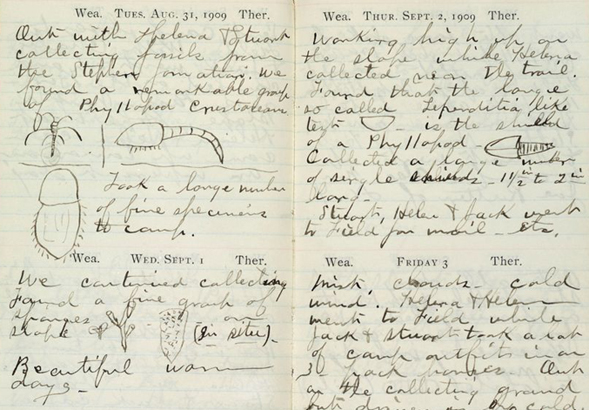 Wea. TUES. AUG. 31, 1909 Ther.
Out with Helena & Stuart
collecting fossils from
the Stephen formation. We
found a remarkable group
of Phyllopod Crustaceans
Took a large number
of fine specimens
to camp.
Wea. WED. SEPT. 1 Ther.
We continued collecting
found a fine group of
sponges on
slope (in situ)
Beautiful warm
days
Wea. THUR. SEPT. 2, 1909 Ther.
Working high up on
the slope while Helena
collected near the trail.
Found that the large
so called Leperditia like
test is the shield
of a Phyllopod
Collected a large number
of single 1 1/2 in to 2 in
long
Stuart, Helen & Jack went
to Field for mail etc.
Wea. FRIDAY 3 Ther.
Mist, clouds cold
wind. Helena & Helen
went to Field while
Jack & Stuart took a lot
of camp outfits in on
3 pack horses. Out
on the collecting ground
but cold